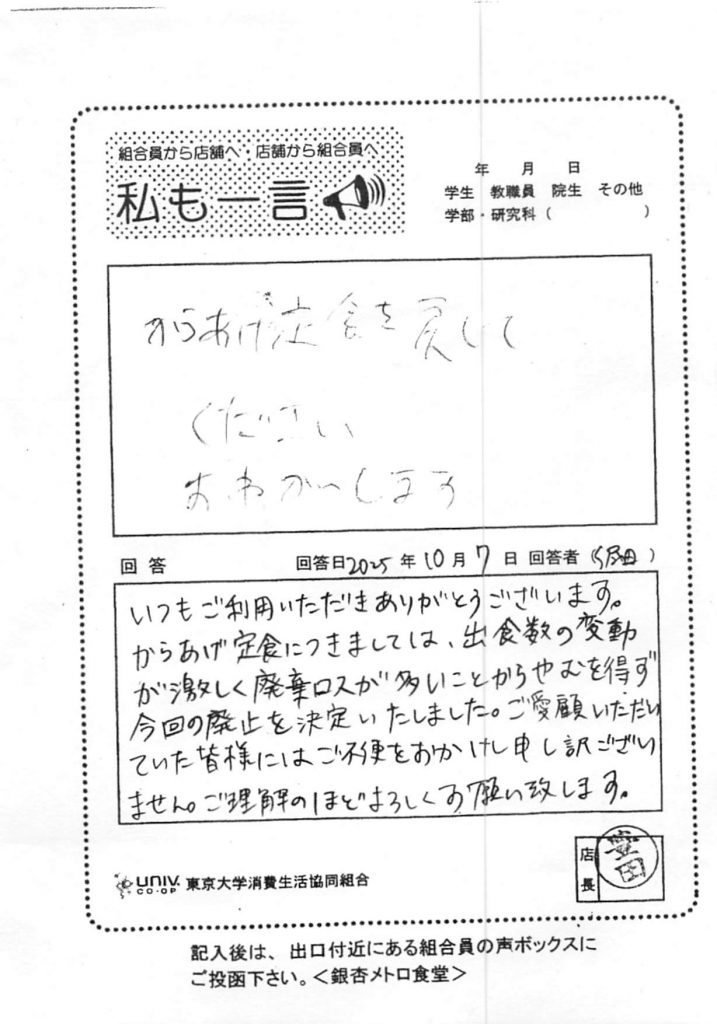 組合員から店舗へ・店舗から組合員へ
私も一言
年 月 日
学生 教職員 院生 その他
学部・研究科( )
からあげ定食を戻して
ください
おねがいします
回答 回答日2025年10月7日 回答者( )
いつもご利用いただきありがとうございます。
からあげ定食につきましては、出食数の変動
が激しく廃棄ロスが多いことからやむを得ず
今回の廃止を決定いたしました。ご愛顧いただい
ていた皆様にはご不便をおかけし申し訳ござい
ません。ご理解のほどよろしくお願い致します。
店長
豊田
UNIV. CO-OP 東京大学消費生活協同組合
記入後は、出口付近にある組合員の声ボックスに
ご投函下さい。<銀杏メトロ食堂>